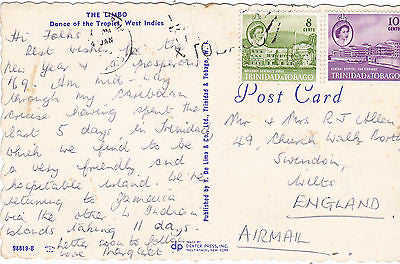 THE LIMBO
Dance of the Tropics, West Indies
Hi Folks
Best wishes for the
New Year & prosperous
'69. Am mid-way
through my Caribbean
cruise having spent the
last 5 days in Trinidad
which we find to be
a very friendly, and
hospitable island. We're
returning to Jamaica
via the other W Indian
islands taking 11 days.
Letter soon to follow
Love Margaret.
98819-B
Published by Y. De Lima & Co., Ltd., Trinidad & Tobago, W.
MADE BY
DEXTER PRESS, INC.
WEST NYACK, NEW YORK
dp
4 JAN
8
CENTS
TRINIDAD & TOBAGO
10
CENTS
TRINIDAD & TOBAGO
Post Card
Mr & Mrs R J Allen
49, Church Walk North
Swindon,
Wilts
ENGLAND
AIRMAIL